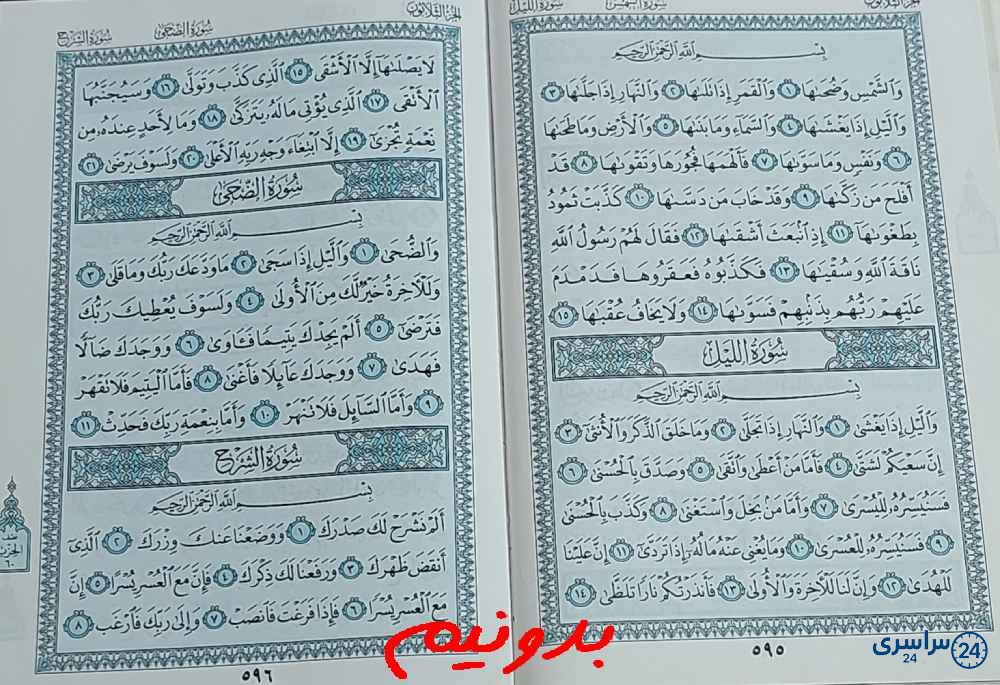 الجزء الثلاثون
سورة الشمس
سورة الليل
بِسْمِ اللَّهِ الرَّحْمَٰنِ الرَّحِيمِ
وَالشَّمْسِ وَضُحَىٰهَا ١ وَالْقَمَرِ إِذَا تَلَىٰهَا ٢ وَالنَّهَارِ إِذَا جَلَّىٰهَا ٣
وَاللَّيْلِ إِذَا يَغْشَىٰهَا ٤ وَالسَّمَاءِ وَمَا بَنَىٰهَا ٥ وَالْأَرْضِ وَمَا طَحَىٰهَا
٦ وَنَفْسٍ وَمَا سَوَّىٰهَا ٧ فَأَلْهَمَهَا فُجُورَهَا وَتَقْوَىٰهَا ٨ قَدْ
أَفْلَحَ مَن زَكَّىٰهَا ٩ وَقَدْ خَابَ مَن دَسَّىٰهَا ١٠ كَذَّبَتْ ثَمُودُ
بِطَغْوَىٰهَا ١١ إِذِ انبَعَثَ أَشْقَىٰهَا ١٢ فَقَالَ لَهُمْ رَسُولُ اللَّهِ
نَاقَةَ اللَّهِ وَسُقْيَٰهَا ١٣ فَكَذَّبُوهُ فَعَقَرُوهَا فَدَمْدَمَ
عَلَيْهِمْ رَبُّهُم بِذَنبِهِمْ فَسَوَّىٰهَا ١٤ وَلَا يَخَافُ عُقْبَٰهَا ١٥
سُورَةُ اللَّيْلِ
بِسْمِ اللَّهِ الرَّحْمَٰنِ الرَّحِيمِ
وَاللَّيْلِ إِذَا يَغْشَىٰ ١ وَالنَّهَارِ إِذَا تَجَلَّىٰ ٢ وَمَا خَلَقَ الذَّكَرَ وَالْأُنثَىٰ ٣
إِنَّ سَعْيَكُمْ لَشَتَّىٰ ٤ فَأَمَّا مَنْ أَعْطَىٰ وَاتَّقَىٰ ٥ وَصَدَّقَ بِالْحُسْنَىٰ ٦
فَسَنُيَسِّرُهُ لِلْيُسْرَىٰ ٧ وَأَمَّا مَن بَخِلَ وَاسْتَغْنَىٰ ٨ وَكَذَّبَ بِالْحُسْنَىٰ
٩ فَسَنُيَسِّرُهُ لِلْعُسْرَىٰ ١٠ وَمَا يُغْنِي عَنْهُ مَالُهُ إِذَا تَرَدَّىٰ ١١ إِنَّ عَلَيْنَا
لَلْهُدَىٰ ١٢ وَإِنَّ لَنَا لَلْآخِرَةَ وَالْأُولَىٰ ١٣ فَأَنذَرْتُكُمْ نَارًا تَلَظَّىٰ ١٤
٥٩٥
الجزء الثلاثون
سورة الضحى
سورة الشرح
لَا يَصْلَىٰهَا إِلَّا الْأَشْقَى ١٥ الَّذِي كَذَّبَ وَتَوَلَّىٰ ١٦ وَسَيُجَنَّبُهَا
الْأَتْقَى ١٧ الَّذِي يُؤْتِي مَالَهُ يَتَزَكَّىٰ ١٨ وَمَا لِأَحَدٍ عِندَهُ مِن
نِّعْمَةٍ تُجْزَىٰ ١٩ إِلَّا ابْتِغَاءَ وَجْهِ رَبِّهِ الْأَعْلَىٰ ٢٠ وَلَسَوْفَ يَرْضَىٰ ٢١
سُورَةُ الضُّحَى
بِسْمِ اللَّهِ الرَّحْمَٰنِ الرَّحِيمِ
وَالضُّحَىٰ ١ وَاللَّيْلِ إِذَا سَجَىٰ ٢ مَا وَدَّعَكَ رَبُّكَ وَمَا قَلَىٰ ٣
وَلَلْآخِرَةُ خَيْرٌ لَّكَ مِنَ الْأُولَىٰ ٤ وَلَسَوْفَ يُعْطِيكَ رَبُّكَ
فَتَرْضَىٰ ٥ أَلَمْ يَجِدْكَ يَتِيمًا فَآوَىٰ ٦ وَوَجَدَكَ ضَالًّا
فَهَدَىٰ ٧ وَوَجَدَكَ عَائِلًا فَأَغْنَىٰ ٨ فَأَمَّا الْيَتِيمَ فَلَا تَقْهَرْ
٩ وَأَمَّا السَّائِلَ فَلَا تَنْهَرْ ١٠ وَأَمَّا بِنِعْمَةِ رَبِّكَ فَحَدِّثْ ١١
سُورَةُ الشَّرْحِ
بِسْمِ اللَّهِ الرَّحْمَٰنِ الرَّحِيمِ
أَلَمْ نَشْرَحْ لَكَ صَدْرَكَ ١ وَوَضَعْنَا عَنكَ وِزْرَكَ ٢ الَّذِي
أَنقَضَ ظَهْرَكَ ٣ وَرَفَعْنَا لَكَ ذِكْرَكَ ٤ فَإِنَّ مَعَ الْعُسْرِ يُسْرًا ٥ إِنَّ
مَعَ الْعُسْرِ يُسْرًا ٦ فَإِذَا فَرَغْتَ فَانصَبْ ٧ وَإِلَىٰ رَبِّكَ فَارْغَب ٨
نصف
الحزب
٦٠
٥٩٦
بدونیم
سراسری 24
24